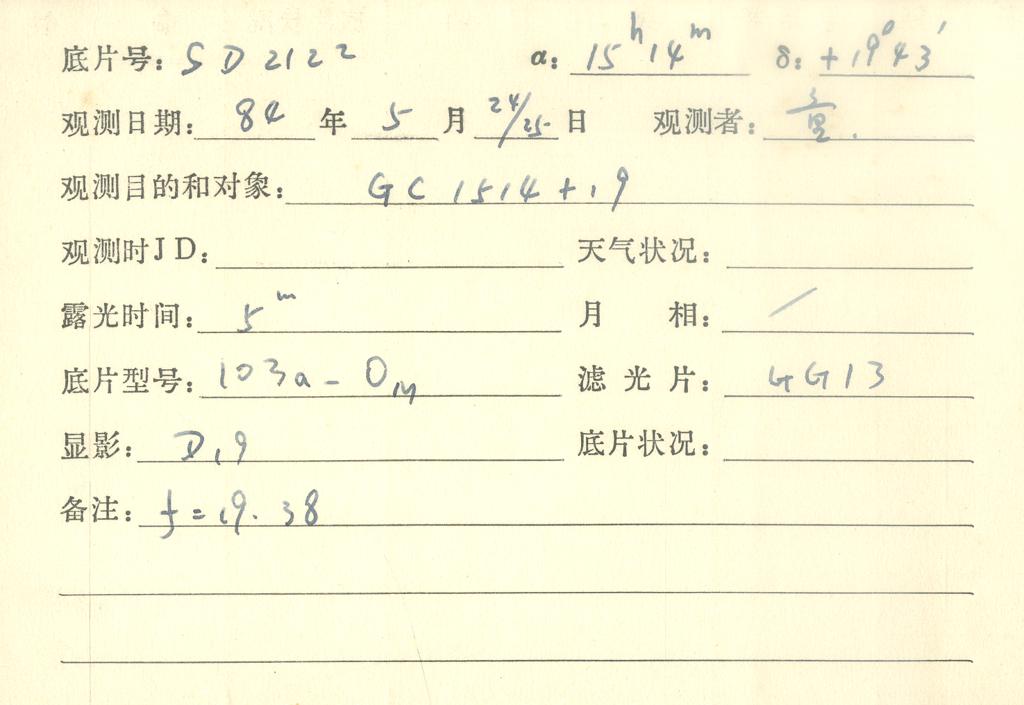 底片号: SD2122 α: 15h14m δ: +19°43′
观测日期: 84 年 5 月 24/25 日 观测者:
观测目的和对象: GC 1514+19
观测时JD: 天气状况:
露光时间: 5m 月 相: /
底片型号: 103a-O 滤光片: GG13
显影: D19 底片状况:
备注: f=19.38